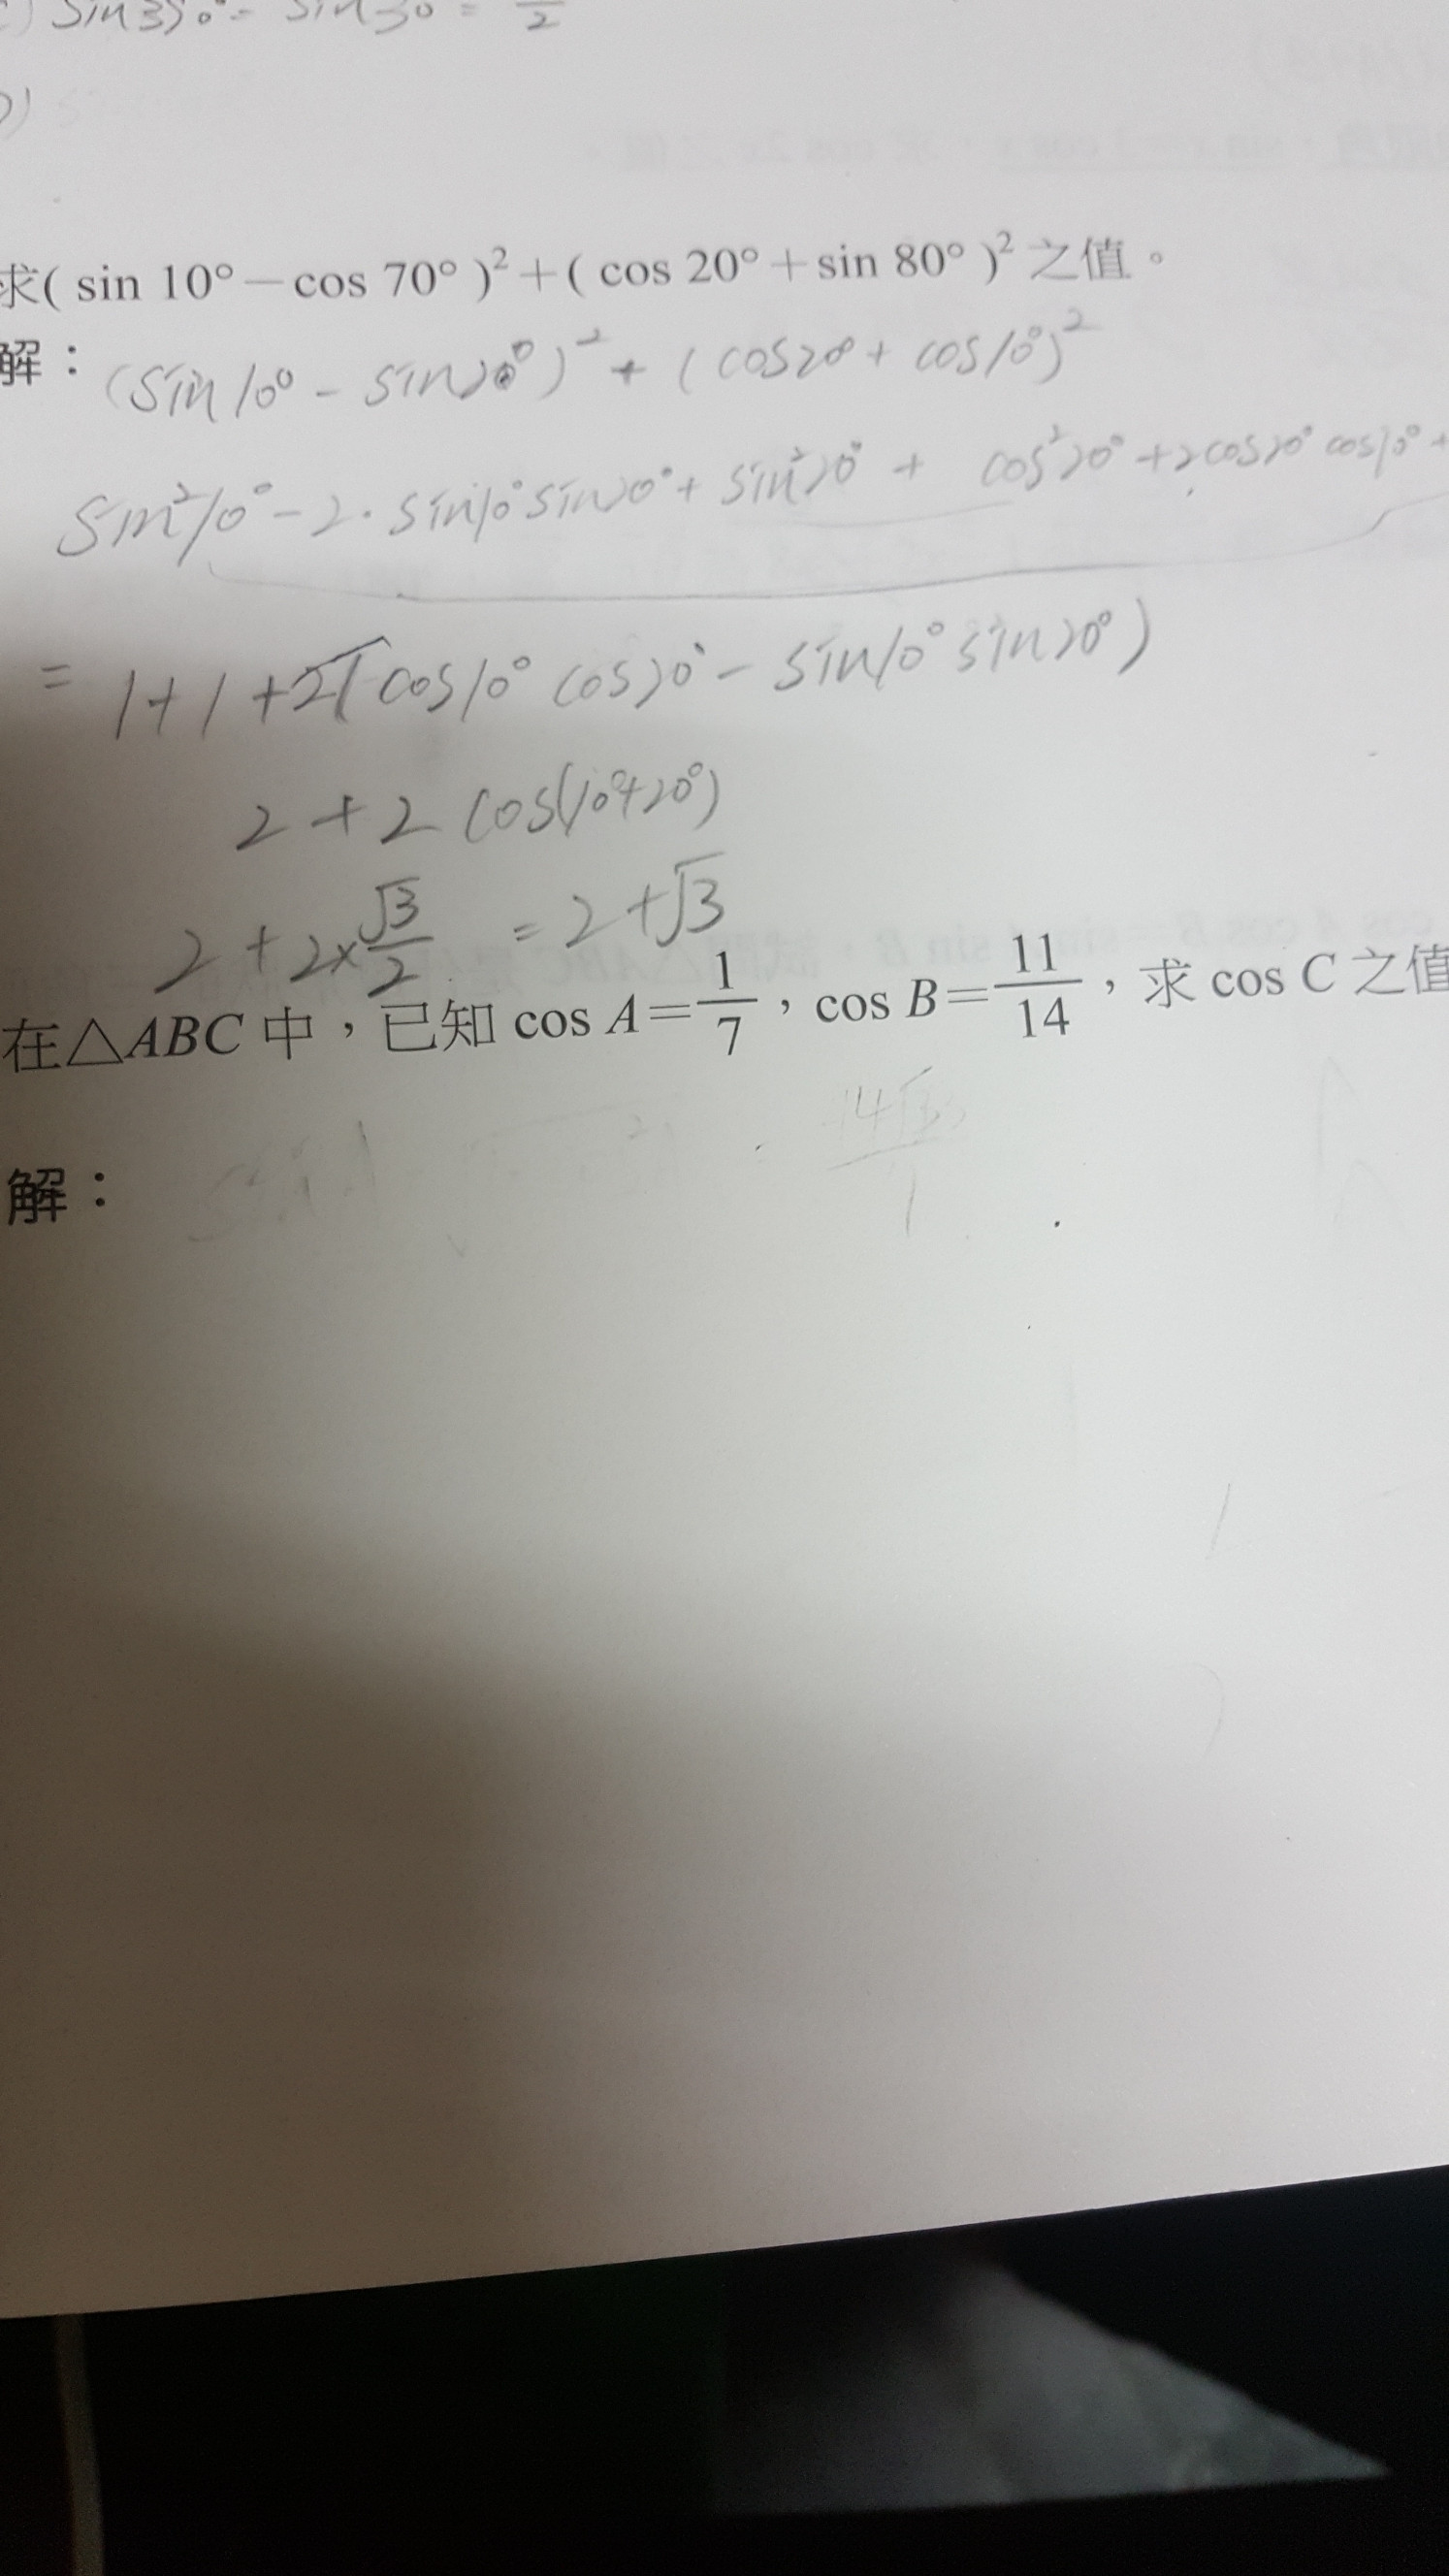 sin330° = - sin30 = 2
求( sin 10°－cos 70° )²＋( cos 20°＋sin 80° )² 之值。
解： (sin10° - sin20°)² + (cos20° + cos10°)²
sin²10° - 2·sin10°sin20° + sin²20° + cos²20° + 2cos20° cos10° +
= 1+1+2(cos10° cos20° - sin10° sin20°)
2 + 2 cos(10°+20°)
2 + 2×√3/2 = 2+√3
在△ABC 中，已知 cos A＝1/7，cos B＝11/14，求 cos C 之值
解：